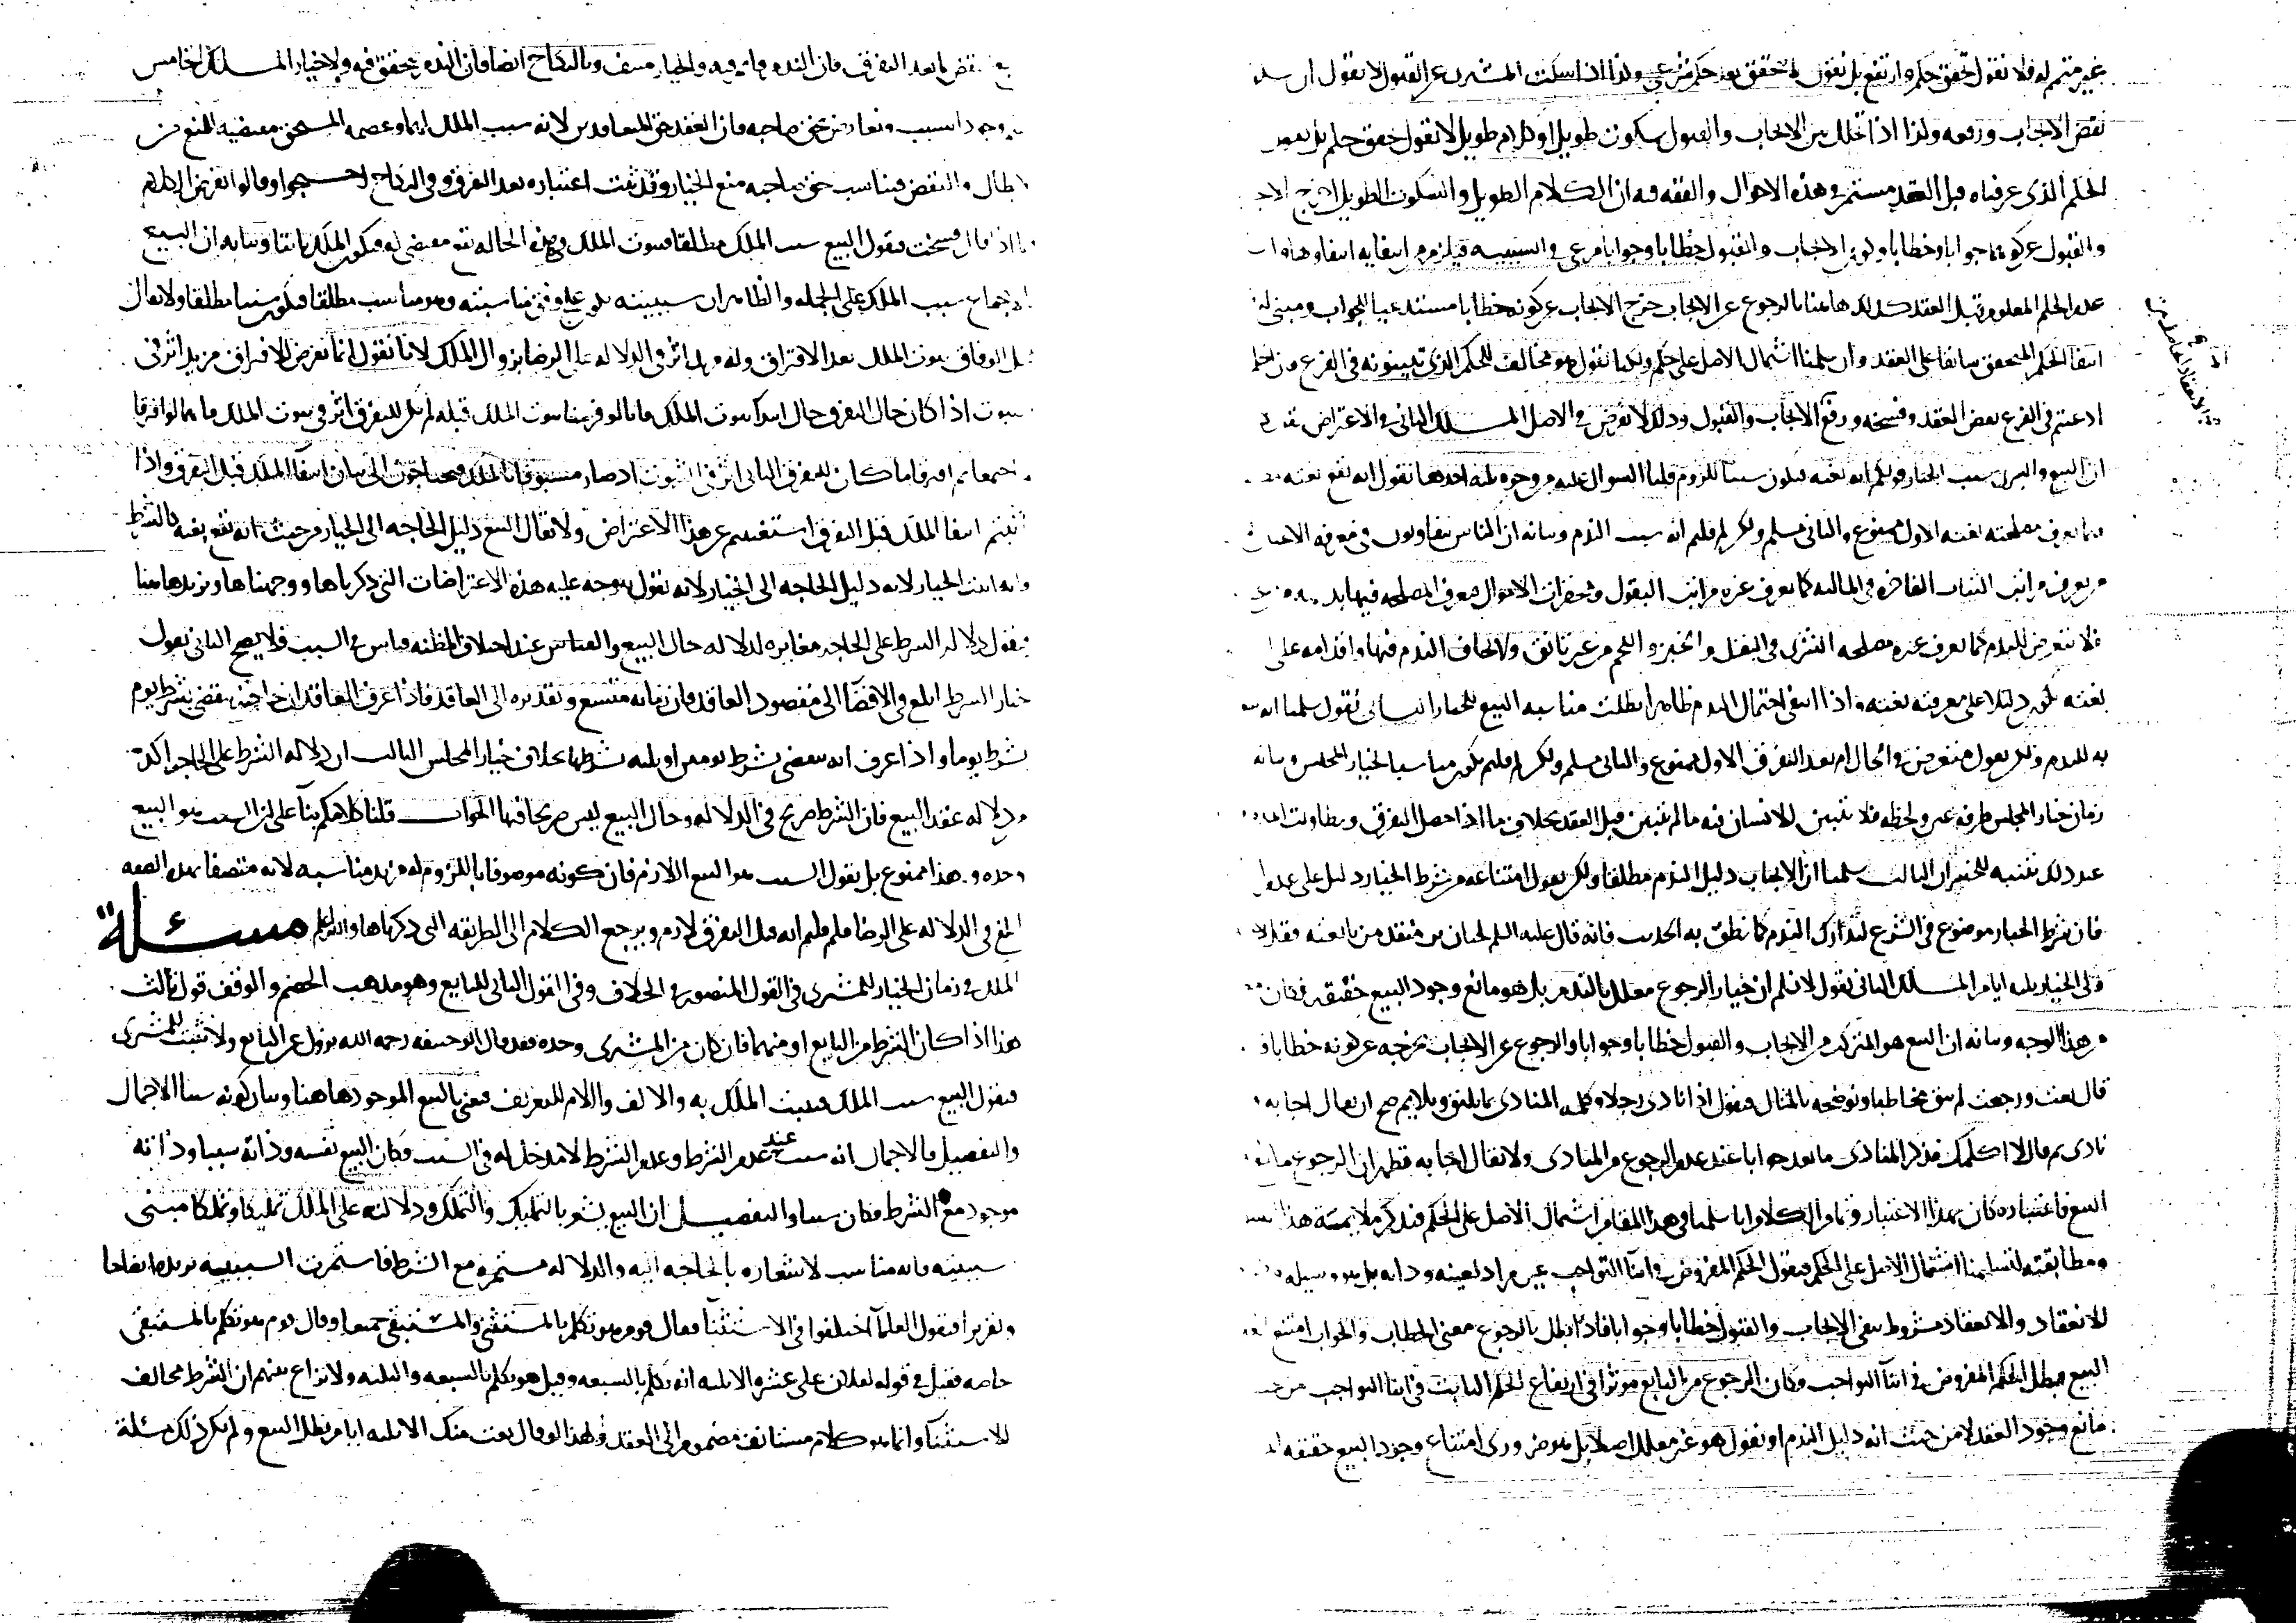 غير متمم له فلا نقول تحقق حكم وارتفع بل نقول لم يتحقق بعد حكم شرعي ولذا اذا سكت المشتري عن القبول لا نقول ان
نقض الايجاب ورفعه ولذا اذا تخلل بين الايجاب والقبول سكوت طويل او كلام طويل لا نقول تحقق حكم بل نقول
الحكم الذي عرفناه قبل العقد مستمر في هذه الاحوال والفقه فيه ان الكلام الطويل والسكوت الطويل
والقبول عن كونهما جوابا وخطابا وكون الايجاب والقبول خطابا وجوابا مرعي في السببية فيلزم من انتفايه انتفاوها
عدم الحكم المعلوم قبل العقد كذلك هاهنا بالرجوع عن الايجاب خرج الايجاب عن كونه خطابا مستدعيا للجواب
انتفا الحكم المتحقق سابقا على العقد وان سلمنا اشتمال الاصل على حكم ولكنا نقول هو مخالف للحكم الذي تثبتونه في الفرع
ادعيتم في الفرع نقض العقد وفسخه ورفع الايجاب والقبول وذلك لا يفرض في الاصل المسلك الثاني في الاعتراض
ان البيع والتبري سبب الخيار قولكم انه بغته فيكون سببا للندم قلنا السوال عليه من وجوه ثلثه احدها نقول انه يقع بغته
مصلحته بغته الاول ممنوع والثاني مسلم ولكن لم قلتم انه سبب الندم وبيانه ان الناس يتفاوتون في معرفة
من يعرف مراتب الثياب الفاخرة في المالية كما يعرف غيره مراتب البقول ومحقرات الاموال يعرف المصلحه فيها
فلا يتعرض للندم كما يعرف غيره مصلحه الشرى في البقل والخبز واللحم من غير تانق ولا يخاف الندم فيها واقدامه على
بغته يكون دليلا على معرفته بغته واذا انتفى احتمال الندم ظاهرا بطلت مناسبه البيع للخيار الثاني نقول سلمنا انه
للندم ولكن نقول متعرض في الحال ام بعد التفرق الاول ممنوع والثاني مسلم ولكن لم قلتم يكون مناسبا لخيار المجلس وبيانه
زمان خيار المجلس طرفة عين ولحظه فلا يتبين للانسان فيه ما لم يتبين قبل العقد بخلاف ما اذا حصل التفرق وتطاولت المده
عند ذلك يتنبه للخسران الثالث سلمنا ان الايجاب دليل الندم مطلقا ولكن نقول امتناعه من شرط الخيار دليل على عدم
فان شرط الخيار موضوع في الشرع لتدارك الندم كما نطق به الحديث فانه قال عليه السلم لحبان بن منقذ من بايعته فقل لا
ولي الخيار ثلثه ايام المسلك الثاني نقول لا نسلم ان خيار الرجوع معلل بالندم بل هو مانع وجود البيع حقيقه فكان
من هذا الوجه وبيانه ان البيع هو المتركب من الايجاب والقبول خطابا وجوابا والرجوع عن الايجاب يخرجه عن كونه خطابا
قال بعت ورجعت لم يبق مخاطبا ونوضحه بالمثال فنقول اذا نادى رجلا وكلمه المنادى بما يليق ويلايم صح ان يقال اجابه
نادى ثم قال لا اكلمك فذكر المنادى ما يعد جوابا عند عدم الرجوع من المنادي ولا يقال اجابه فظهر ان الرجوع مانع
البيع فاعتباره كان بهذا الاعتبار
ومطابقته لتسليمنا اشتمال الاصل على الحكم فنقول الحكم المفروض في اثنا التواجب غير مراد لعينه وذاته بل هو وسيله
للانعقاد والانعقاد مشروط ببقى الايجاب والقبول خطابا وجوابا فاذا بطل بالرجوع معنى الخطاب والجواب امتنع
البيع فبطل الحكم المفروض في اثنا التواجب وكان الرجوع من البايع موثرا في ارتفاع الحكم الثابت في اثنا التواجب من حيث
مانع وجود العقد لا من حيث انه دليل الندم او نقول هو غير معلل اصلا بل هو ضروري امتناع وجود البيع حقيقه
نقض ما بعد التفرق فان الندم فيه والخيار منتف وبالنكاح ايضا فان الندم يتحقق فيه ولا خيار المسلك الخامس
وجود السبب وتعارض حق صاحبه فان العقد حق المتعاقدين لانه سبب الملك لهما وعصمه المستحق مقتضيه للمنع من
الابطال والنقض فيناسب حق صاحبه منع الخيار وقد ثبت اعتباره بعد التفرق وفي النكاح احتجوا وقالوا نفرض الكلام
اذا قال فسخت فنقول البيع سبب الملك مطلقا فثبوت الملك في هذه الحاله يقع مقتضى له فيكون الملك ثابتا وبيانه ان البيع
الاجماع سبب الملك على الجمله والظاهر ان سببيته على وفق مناسبته وهو مناسب مطلقا فيكون سببا مطلقا ولا يقال
الوفاق ثبوت الملك بعد الافتراق وله مزيد اثر في الدلاله على الرضا بزوال الملك لانا نقول انما نفرض للافتراق مزيد اثر في
ثبوت اذا كان حال التفرق حال ابتدا ثبوت الملك فاما لو فرضنا ثبوت الملك قبله لم يكن للتفرق اثر في ثبوت الملك فانهما لو افترقا
اجتمعا ثم افترقا ما كان للتفرق الثاني اثر في الثبوت اذ صار مسبوقا بالملك فيحتاجون الى بيان انتفا الملك قبل التفرق واذا
اثبتم انتفا الملك قبل التفرق استغنيتم عن هذا الاعتراض ولا يقال البيع دليل الحاجه الى الخيار من حيث انه يقع بغته كالشرط
وانه اثبت الخيار لانه دليل الحاجه الى الخيار لانه نقول يتوجه عليه هذه الاعتراضات التي ذكرناها ووجهناها ونزيد هاهنا
فنقول دلاله الشرط على الحاجه مغايره لدلاله حال البيع والقياس عند اختلاف المظنه قياس في السبب فلا يصح الثاني نقول
خيار الشرط ابلغ في الافضا الى مقصود العاقد فان زمانه متسع وتقديره الى العاقد فاذا عرف العاقد ان حاجته تنقضي بشرط يوم
شرط يوما واذا عرف انه تنقضي بشرط يومين او ثلثه شرطها بخلاف خيار المجلس الثالث ان دلاله الشرط على الحاجه اكد من
دلاله عقد البيع فان الشرط صريح في الدلاله وحال البيع ليس صريحا فيها الجواب قلنا كلامكم بنا على ان السبب هو البيع
وحده وهذا ممنوع بل نقول السبب هو البيع اللازم فان كونه موصوفا باللزوم له مزيد مناسبه لانه متصفا بهذه الصفه
ابلغ في الدلاله على الرضا فلم قلتم انه قبل التفرق لازم ويرجع الكلام الى الطريقه التي ذكرناها والله اعلم مسئلة
الملك في زمان الخيار للمشتري في القول المنصور في الخلاف وفي القول الثاني للبايع وهو مذهب الخصم والوقف قول ثالث
هذا اذا كان الشرط من البايع او منهما فان كان من المشتري وحده فقد قال ابو حنيفه رحمه الله يزول عن البايع ولا يثبت للمشتري
فنقول البيع سبب الملك فيثبت الملك به والالف واللام للتعريف فنعني بالبيع الموجود هاهنا وبيان كونه سببا الاجمال
والتفصيل فالاجمال انه سبب عند عدم الشرط وعدم الشرط لا مدخل له في السبب فكان البيع نفسه وذاته سببا وذاته
موجود مع الشرط فكان سببا والتفصيل ان البيع يشعر بالتمليك والتملك ودلالته على الملك تمليكا وتملكا مبنى
سببيته فانه مناسب لاشعاره بالحاجه اليه والدلاله مستمره مع الشرط فاستمرت السببيه نزيده ايضاحا
وتقريرا فنقول العلما اختلفوا في الاستثنا فقال قوم هو تكلم بالمستثنى والمستبقى جميعا وقال قوم هو تكلم بالمستبقى
خاصه فقيل في قوله لفلان على عشره الا ثلثه انه تكلم بالسبعه وقيل هو تكلم بالسبعه والثلثه ولا نزاع بينهم ان الشرط مخالف
للاستثنا وانما هو كلام مستانف مضموم الى العقد ولهذا لو قال بعت منك الا ثلثه ايام بطل البيع ولم يكن ذلك مسئلة